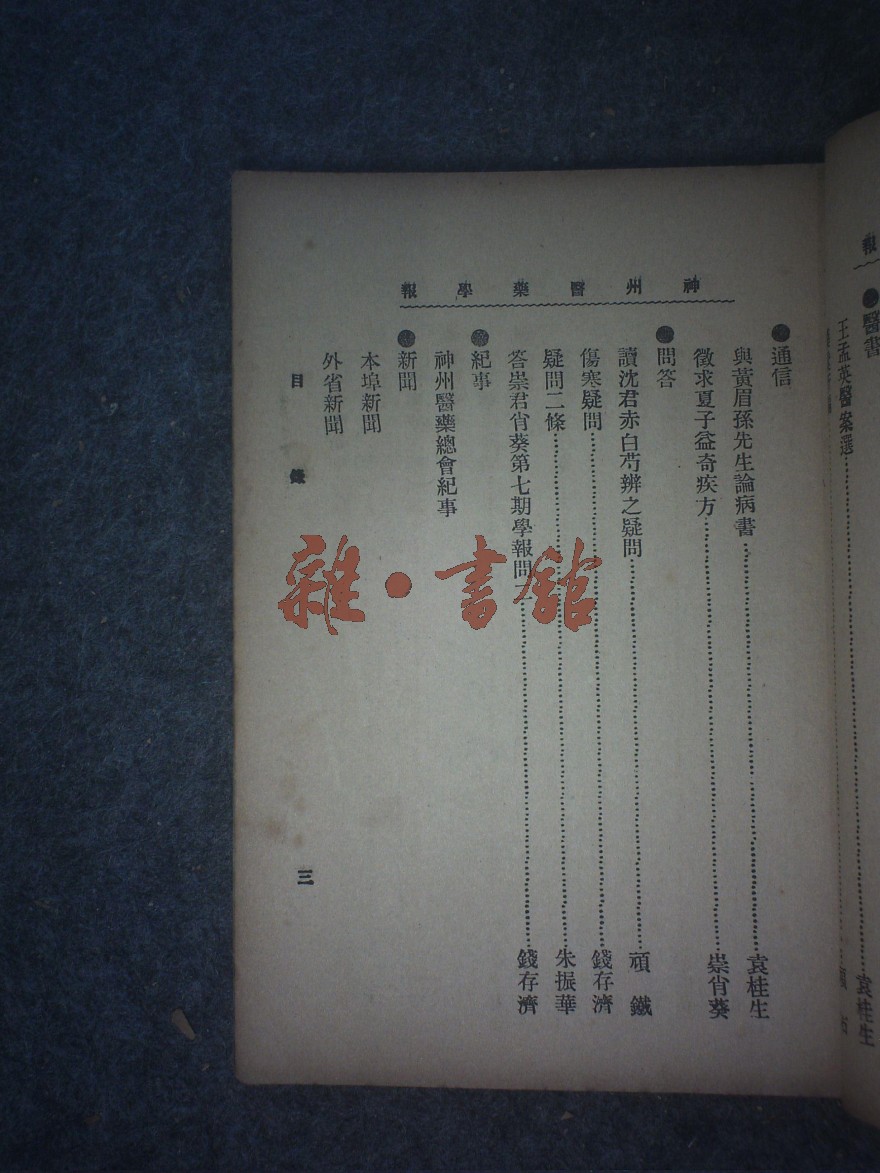 報
●醫書
王孟英醫案選……袁桂生
神州醫藥學報
●通信
與黃眉孫先生論病書……袁桂生
徵求夏子益奇疾方……崇肖葵
●問答
讀沈君赤白芍辨之疑問……頑鐵
傷寒疑問……錢存濟
疑問二條……朱振華
答崇君肖葵第七期學報問……錢存濟
●紀事
神州醫藥總會紀事
●新聞
本埠新聞
外省新聞
目錄
三
雜·書館